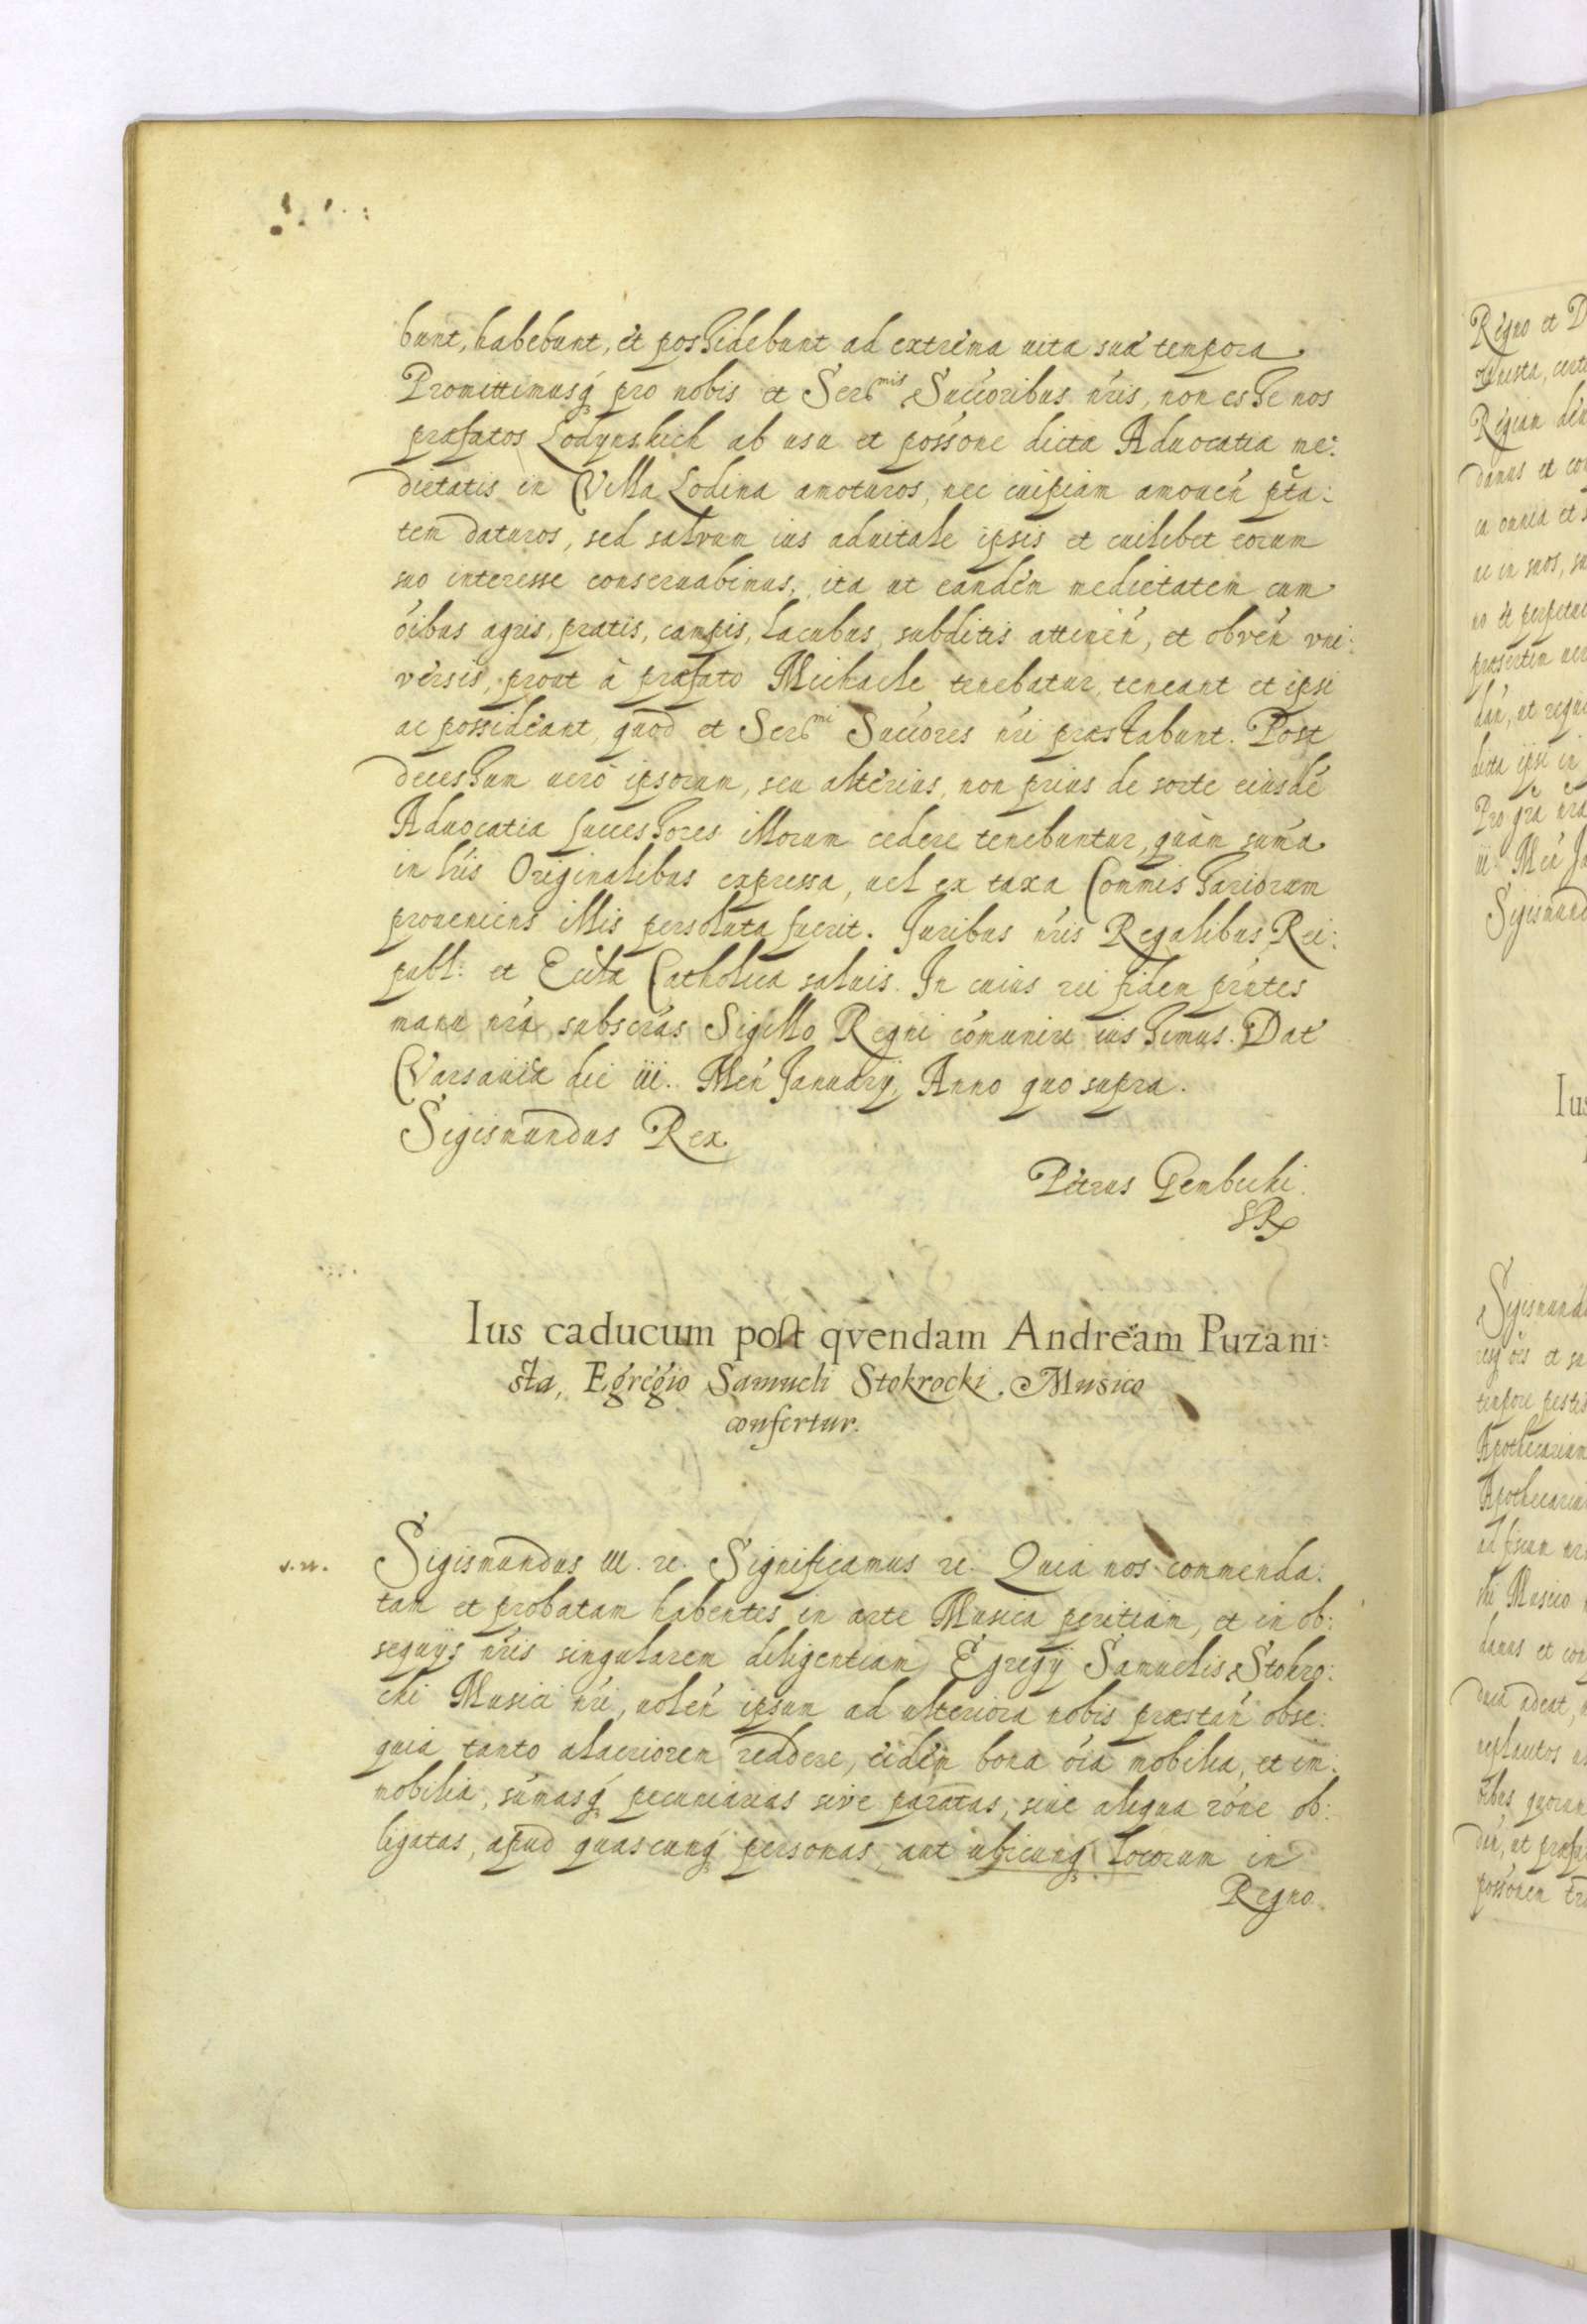 bunt, habebunt, et possidebunt ad extrema uitæ suæ tempora
Promittimusq́ pro nobis et Ser.mis Succoribus nr̃is, non esse nos
præfatos Lodynskich ab usu et possone dictæ Aduocatiæ me:
dietatis in Villa Lodina amoturos, nec cuipiam amouen̄ p̃ta:
tem daturos, sed saluum ius aduitale ipsis et cuilibet eorum
suo interesse conseruabimus, ita ut eandem medietatem cum
oĩbus agris, pratis, campis, lacubus, subditis attinen̄, et obven̄ vni:
versis, prout à præfato Michaele tenebatur, teneant et ipsi
ac possideant, quod et Ser.mi Succores nr̃i præstabunt. Post
decessum uerò ipsorum, seu alterius, non prius de sorte eiusdẽ
Aduocatiæ successores illorum cedere tenebuntur, quàm sum̃a
in lr̃is Originalibus expressa, uel ex taxa Commissariorum
proueniens illis persoluta fuerit. Juribus nr̃is Regalibus, Rei:
publ: et Ecclæ Catholicæ saluis. In cuius rei fidem pr̃ntes
manu nr̃a subscr̃as Sigillo Regni com̃uniri iussimus. Dat
Varsauiæ die iii. Men̄ Januarij, Anno quo supra.
Sigismundus Rex
Petrus Gembicki.
SR
Ius caducum post qvendam Andream Puzani:
sta, Egregio Samueli Stokrocki. Musico
confertur.
Sigismundus III. rc. Significamus rc. Quia nos commenda:
tam et probatam habentes in arte Musica peritiam, et in ob:
sequijs nr̃is singularem diligentiam Egregij Samuelis Stokro:
cki Musici nr̃i, uolen̄ ipsum ad ulteriora nobis præstan̄ obse:
quia tanto alacriorem reddere, eidem bona oĩa mobilia, et im:
mobilia, sum̃asq́ pecuniarias sive paratas, siue aliqua rõne ob:
ligatas, apud quascunq́ personas, aut ubicunq́ locorum in
Regno